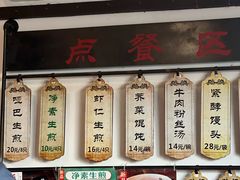 点餐区
哑巴生煎
20元/8只
净素生煎
10元/4只
虾仁生煎
16元/4只
荠菜馄饨
14元/碗
牛肉粉丝汤
14元/碗
紫酵馒头
28元/袋
净素生煎